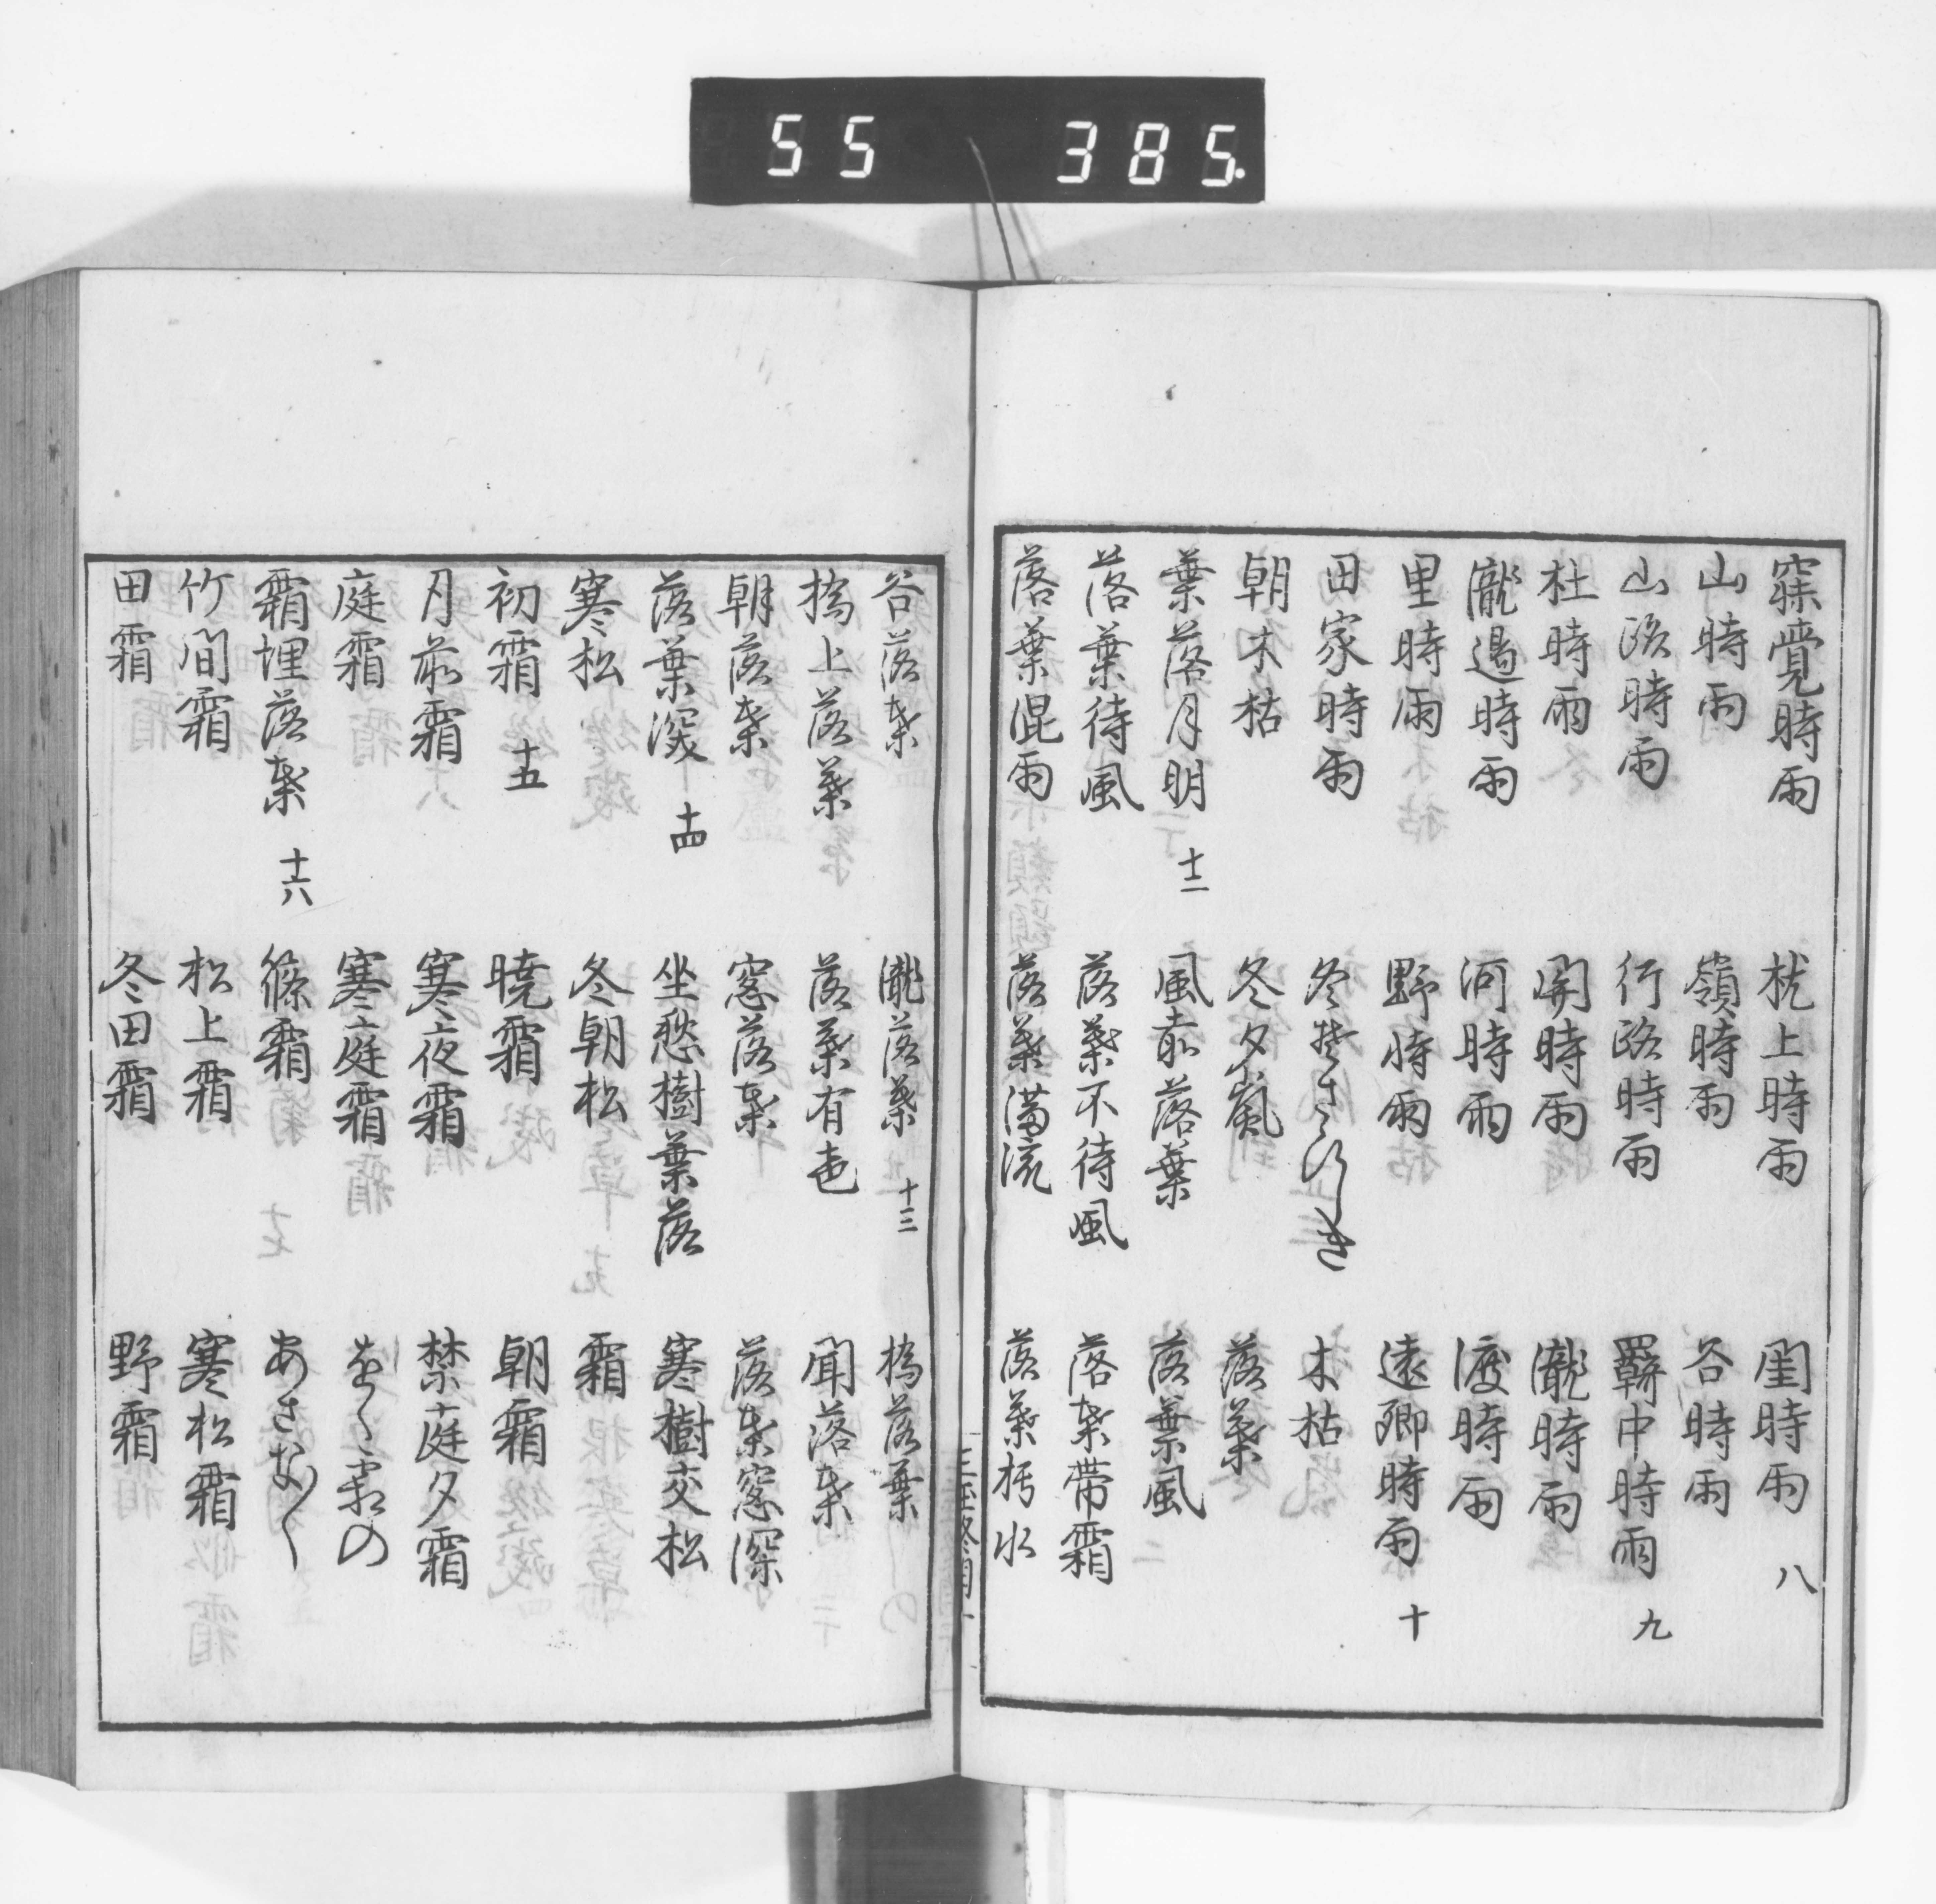 55 385
寐覚時雨 枕上時雨 閨時雨 八
山時雨 嶺時雨 谷時雨
山路時雨 行路時雨 羇中時雨 九
杜時雨 関時雨 瀧時雨
瀧邊時雨 河時雨 渡時雨
里時雨 野時雨 遠郷時雨 十
田家時雨 木枯
朝木枯 冬夕嵐 落葉
葉落月明 十二 風前落葉 落葉風
落葉待風 落葉不待風 落葉帯霜
落葉混雨 落葉満流 落葉朽水
谷落葉 瀧落葉 十三 橋落葉
橋上落葉 落葉有色 聞落葉
朝落葉 窓落葉 落葉窓深
落葉深 十四 坐愁樹葉落 寒樹交松
寒松 冬朝松 霜
初霜 十五 暁霜 朝霜
月前霜 寒夜霜 禁庭夕霜
庭霜 寒庭霜 をく霜の
霜埋落葉 十六 篠霜 あさな〱
竹間霜 松上霜 寒松霜
田霜 冬田霜 野霜